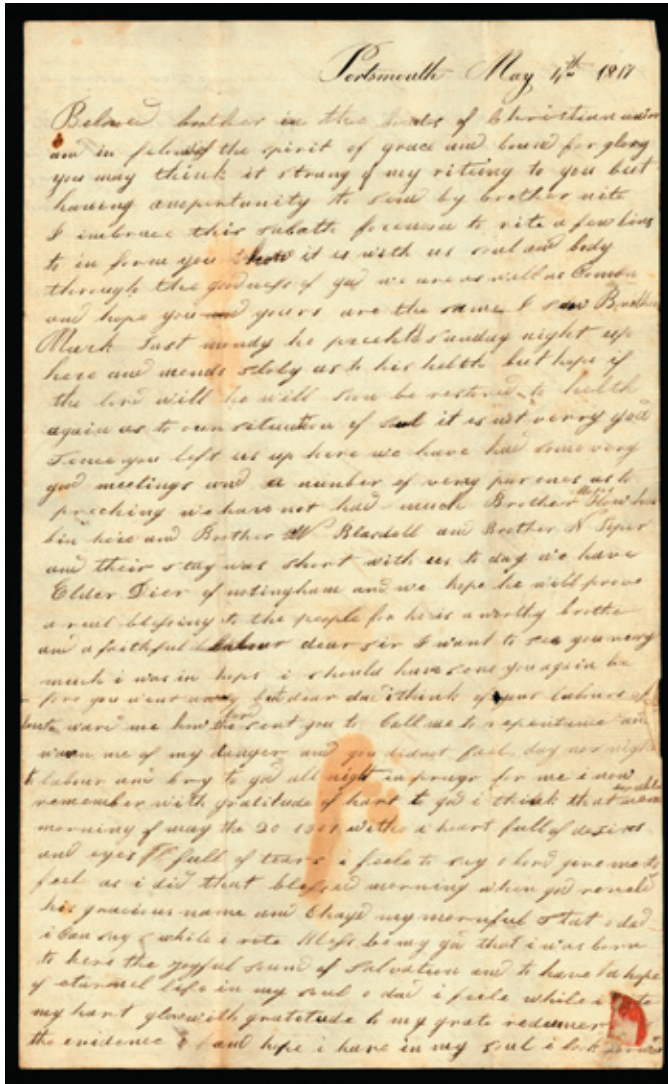 Portsmouth May 4th 1817
Beloved brother in the of Christian union
and in of the spirit of grace and bound for glory
you may think it strang of my riteing to you but
having anopertunity to send by brother
I imbrace this sabath forenoon to rite a few lines
to in forme you how it is with us soul and body
through the goodness of god we are as well as Common
and hope you and yours are the same I saw Brother
Mark last mondy he precht sunday night up
here and mends sloly as to his helth but hope if
the lord will he will soon be restored to helth
again as to our situation of soul it is not verry good
sence you left us up here we have had some very
good meetings and a number of very pur ones as to
preching we have not had much Brother Moses How has
bin here and Brother W Blasdell and Brother N Piper
and their stay was short with us to day we have
Elder Dier of notingham and we hope he will prove
a real blessing to the people for he is a worthy brothe
and a faithful dear sir I want to see you very
much i was in hopes i should have sene you again be
fore you went away but dear dad i think of your labours of
love ward me how the lord sent you to Call me to repentance and
warn me of my danger and you did not feel day nor night
to labour and Cry to god all night in prayr for me i now
remember with gratitude of hart to god i think that
morning of may the 20 with a heart full of desires
and eyes full of tears i feele to say o lord give me to
feel as i did that blessed morning when god reveled
his gracious name and Chayd my mornful stat o dad
i Can say while i rite bless be my god that i was born
to here the joyful sound of salvation and to have a hope
of eturnel life in my soul o dad i feele while i rite
my hart glow with gratitude to my grate redeemer
the evidence and hope i have in my soul i look